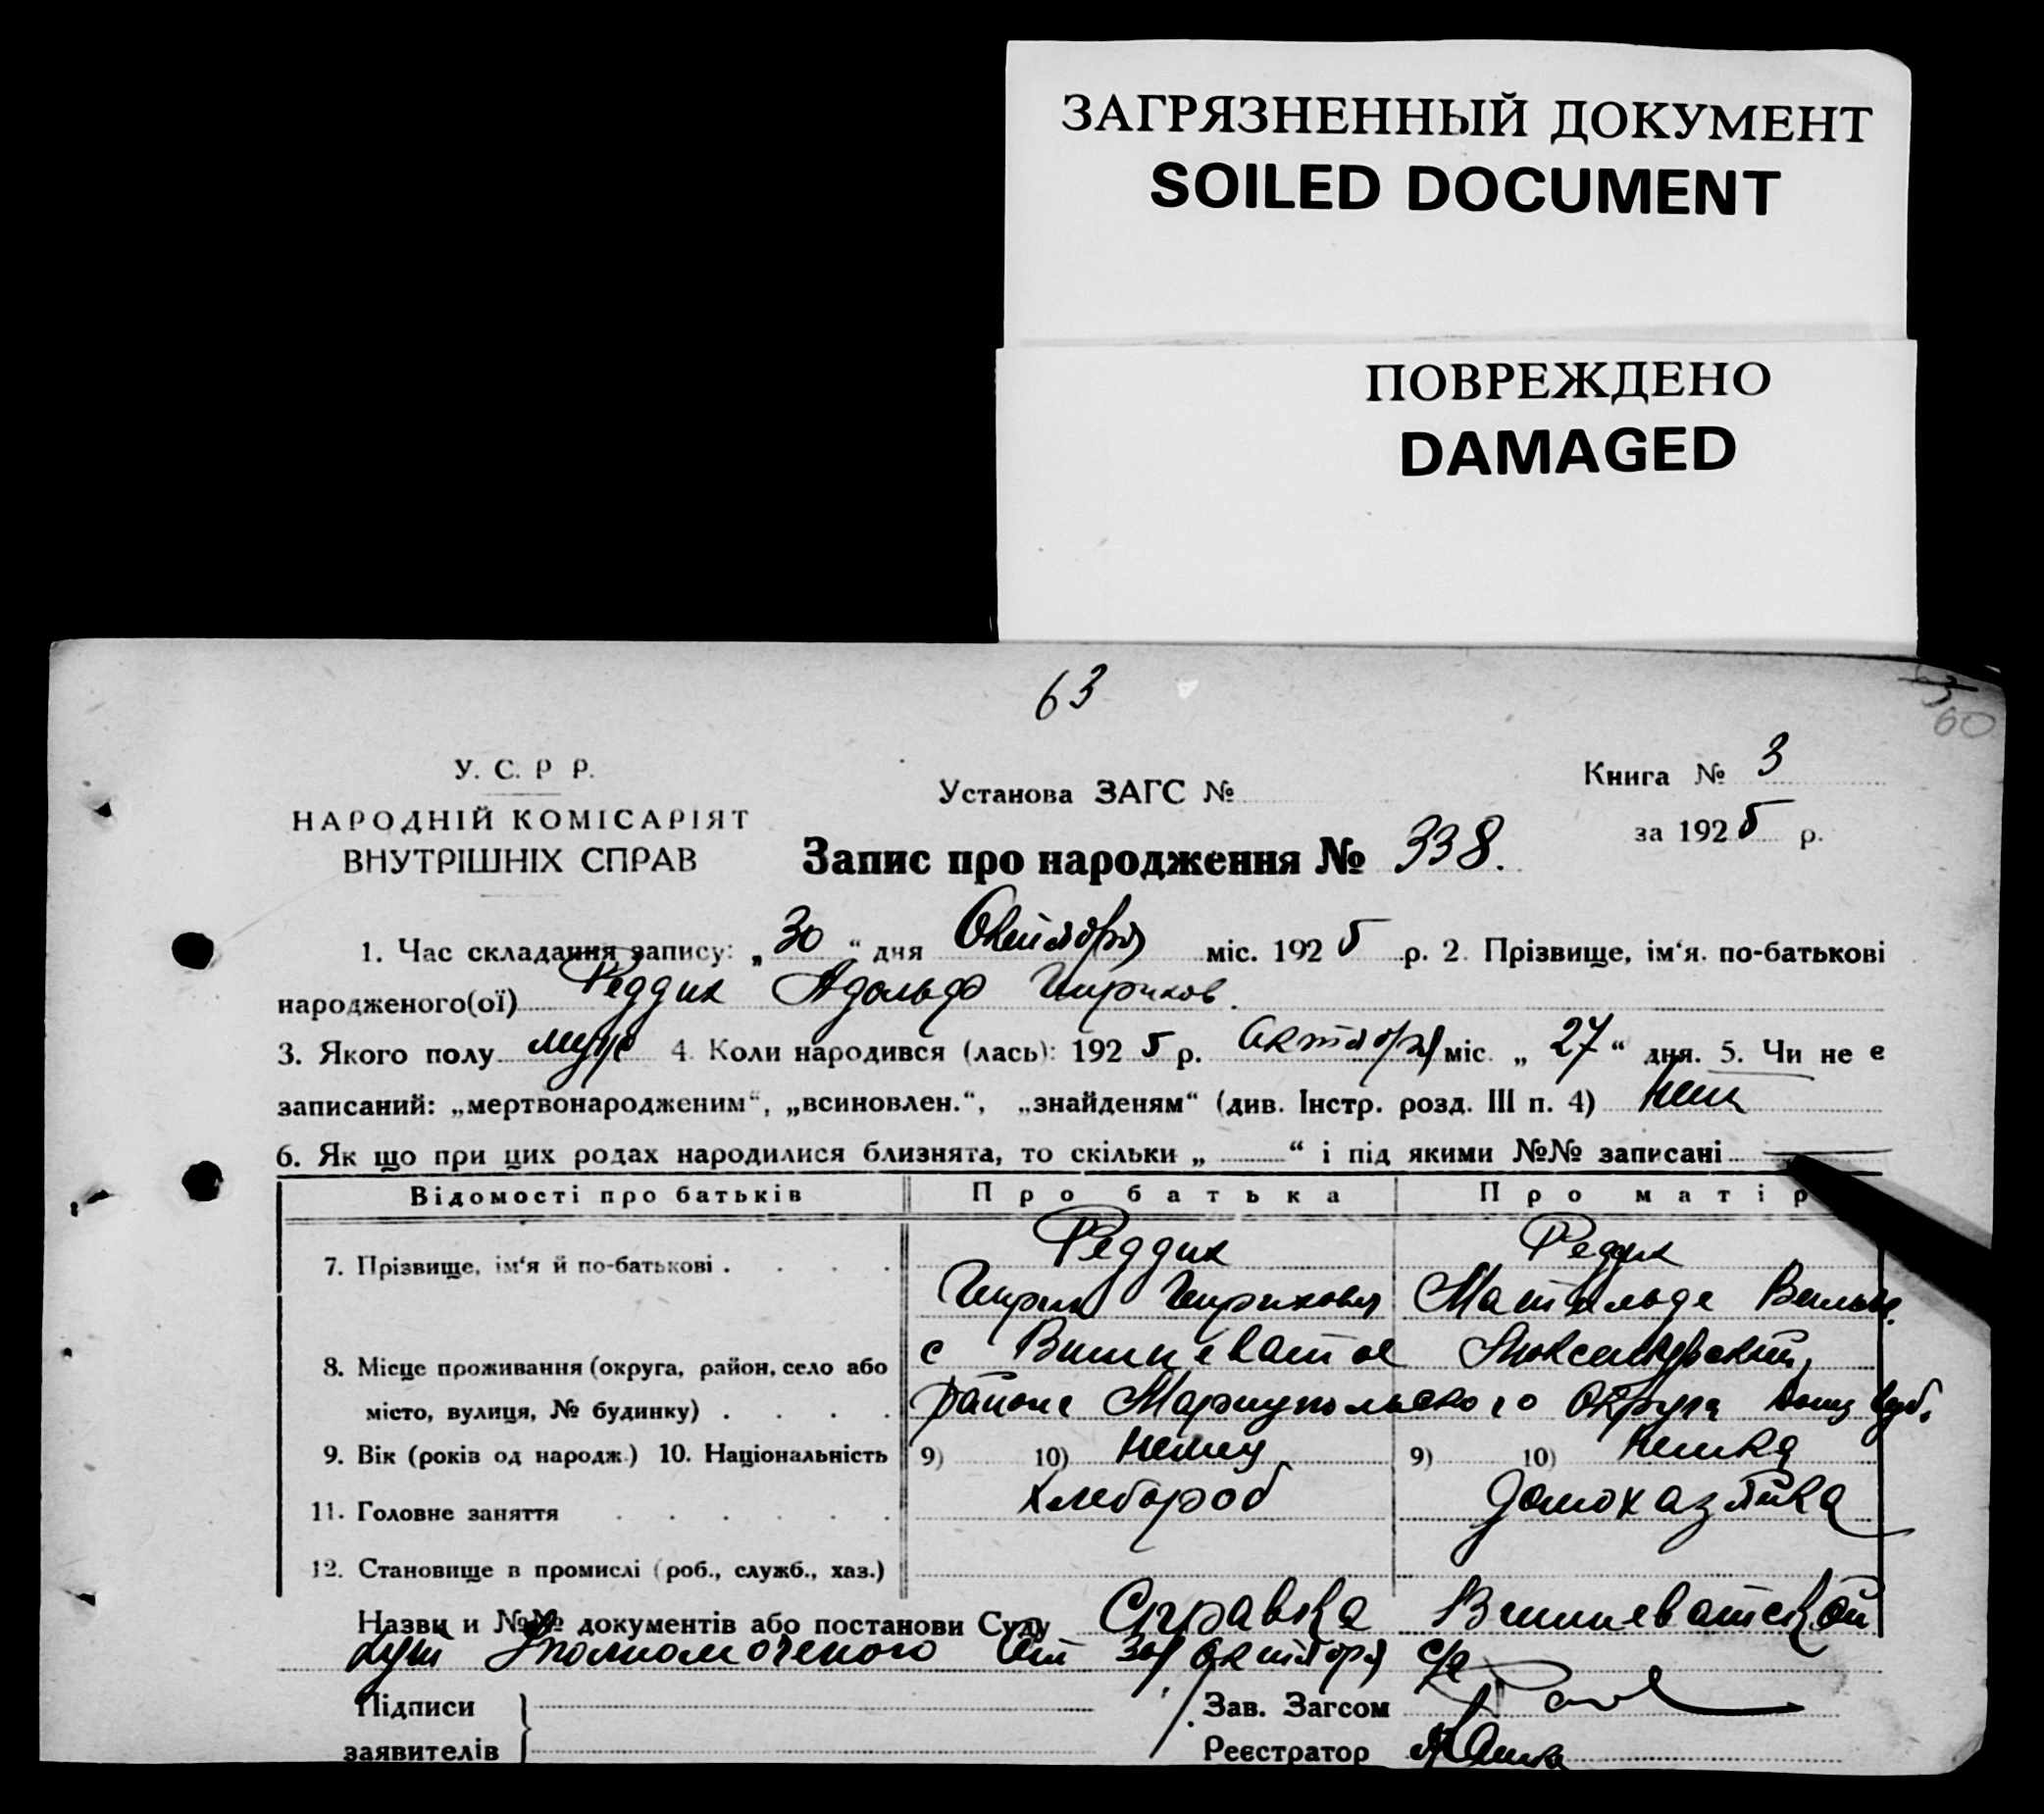 ЗАГРЯЗНЕННЫЙ ДОКУМЕНТ
SOILED DOCUMENT
ПОВРЕЖДЕНО
DAMAGED
63
60
У. С. Р Р.
НАРОДНІЙ КОМІСАРІЯТ
ВНУТРІШНІХ СПРАВ
Установа ЗАГС №
Запис про народження № 338.
Книга № 3
за 1925 р.
1. Час складання запису: „30“ дня Октября міс. 1925 р. 2. Прізвище, ім'я. по-батькові
народженого(ої) Реддих Адольф
3. Якого полу муж 4. Коли народився (лась): 1925 р. Октября міс. „27“ дня. 5. Чи не є
записаний: „мертвонародженим“, „всиновлен.“, „знайденям“ (див. Інстр. розд. III п. 4) нет
6. Як що при цих родах народилися близнята, то скільки „ “ і під якими №№ записані
Відомості про батьків Про батька Про матір
7. Прізвище, ім'я й по-батькові . Реддих Редих
Матильде
8. Місце проживання (округа, район, село або с Вишневатое
місто, вулиця, № будинку) районе Мариупольского Округа Донц губ.
9. Вік (років од народж.) 10. Національність 9) 10) немец 9) 10) немка
11. Головне заняття хлебороб домохазяйка
12. Становище в промислі (роб., служб., хаз.)
Назви и №№ документів або постанови Суду Справка Вишневатской
Уполномоченого от 30/октября с/г
Підписи
заявителів
Зав. Загсом
Реєстратор